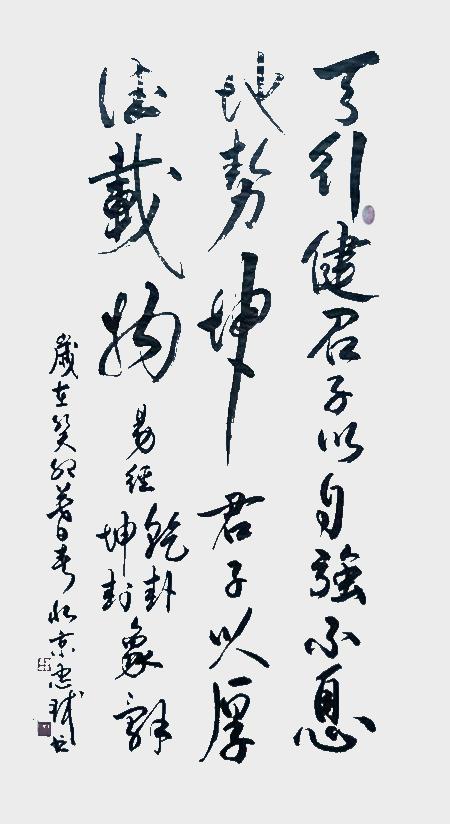 天行健君子以自强不息
地势坤君子以厚
德载物易经乾卦坤卦象辞
歲在癸卯暮春 北京忠 书